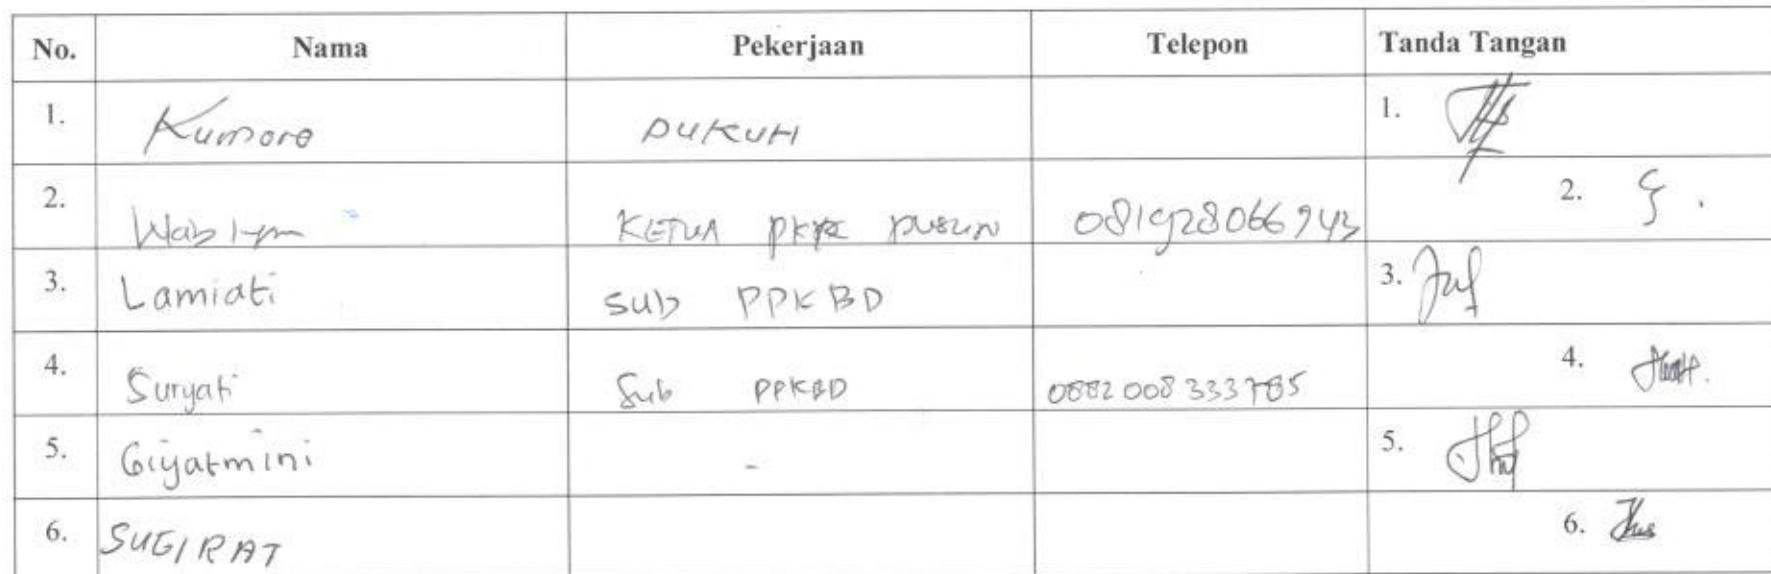 No. Nama Pekerjaan Telepon Tanda Tangan
1. Kumoro DUKUH 1.
2. KETUA PKK DUSUN 081928066943 2.
3. Lamiati Sub PPKBD 3.
4. Suryati Sub PPKBD 0882008333785 4.
5. Giyatmini - 5.
6. SUGIRAT 6.